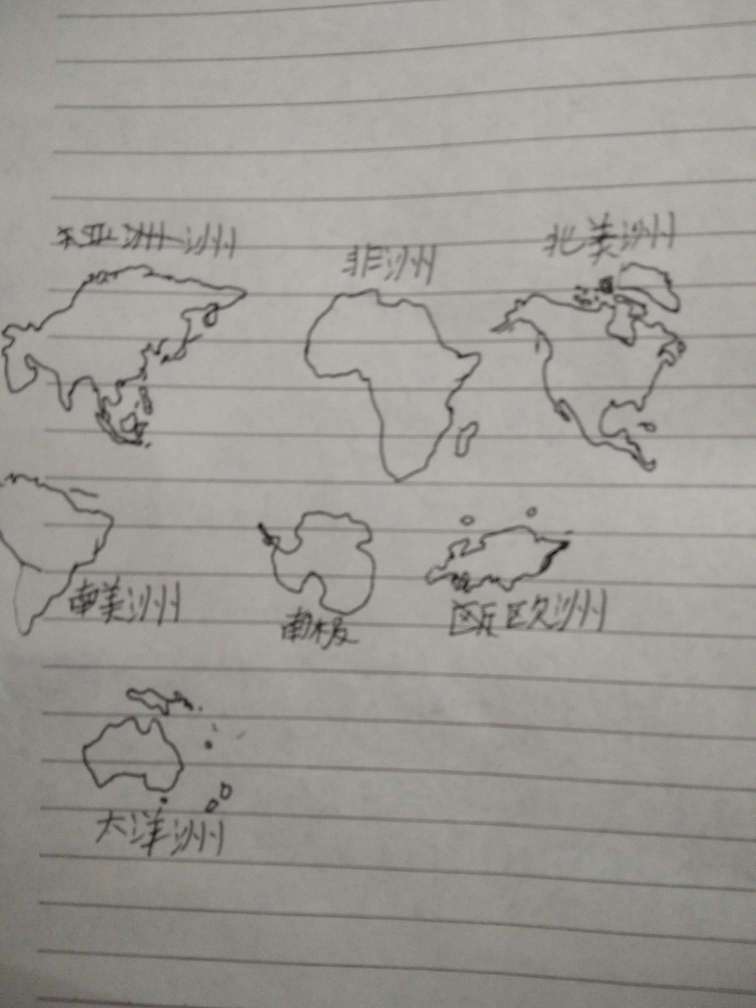 亚洲
非洲
北美洲
南美洲
南极
欧洲
大洋洲